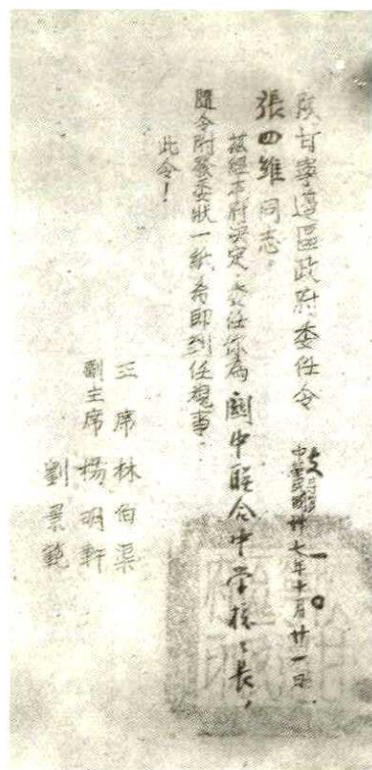 陕甘寧邊區政府委任令
中華民國卅七年十一月廿一日
張四維同志。
茲經本府決定，委任你為關中联合中学校々長，
隨令附發委狀一紙，希即到任視事。
此令！
主席 林伯渠
副主席 楊明軒
劉景範